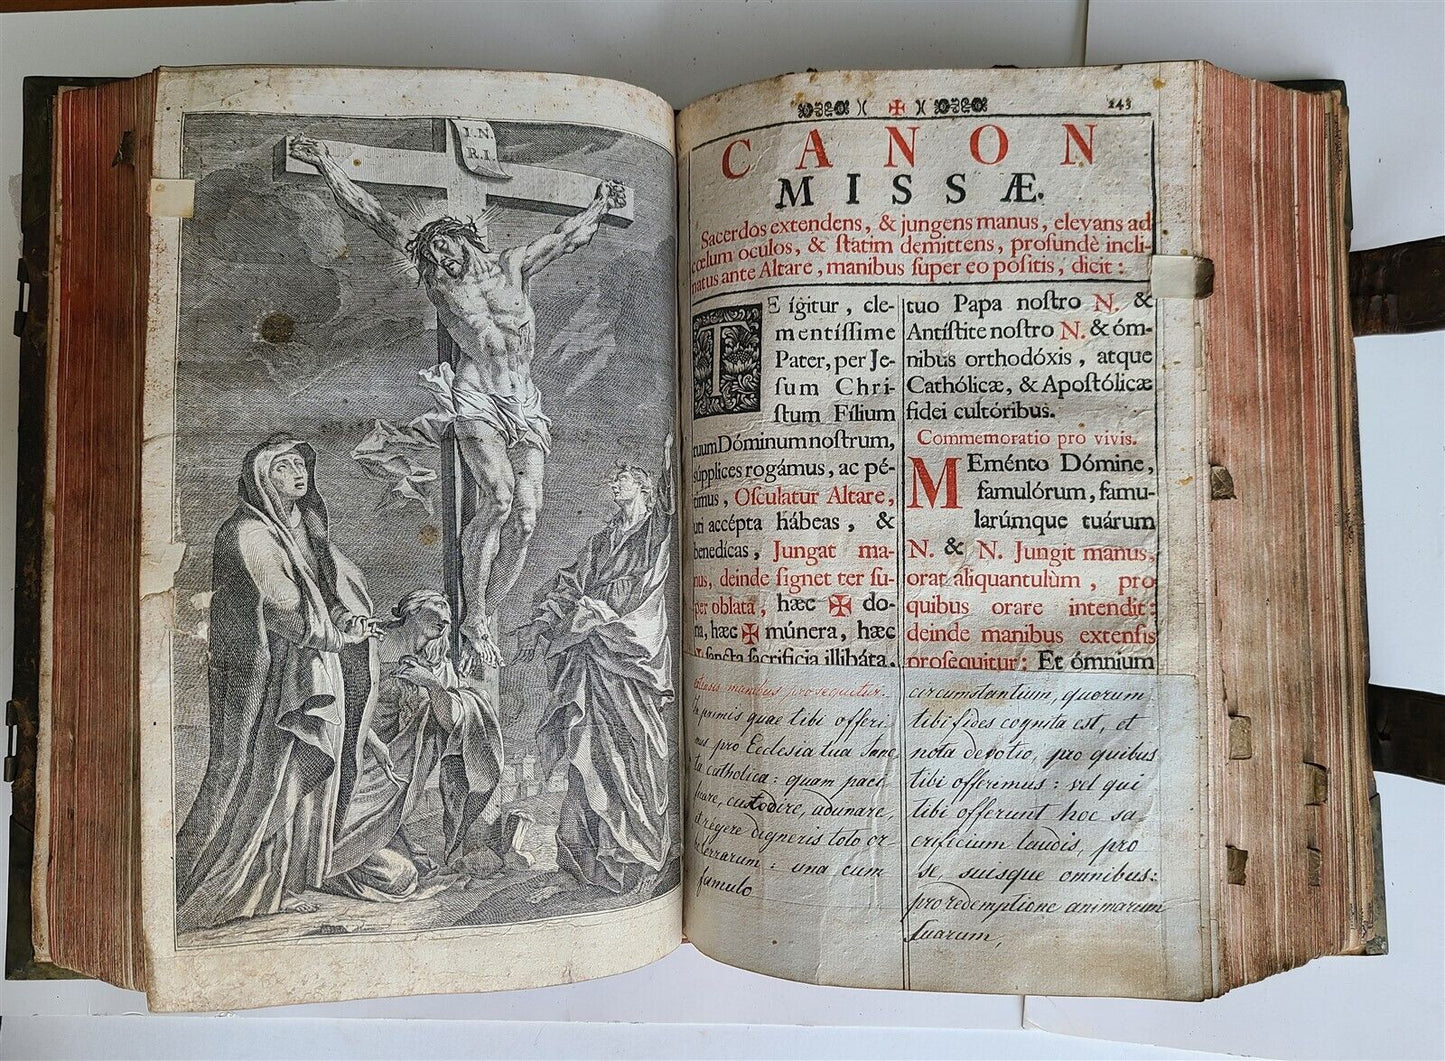 I. N.
R. I.
243
CANON
MISSÆ.
Sacerdos extendens, & jungens manus, elevans ad
cœlum oculos, & ſtatim demittens, profundè incli-
natus ante Altare, manibus ſuper eo poſitis, dicit:
TE ígitur, cle-
mentíſſime
Pater, per Je-
ſum Chri-
ſtum Fílium
tuum Dóminum noſtrum,
súpplices rogámus, ac pé-
timus, Oſculatur Altare,
uti accépta hábeas, &
benedícas, Jungat ma-
nus, deinde ſignet ter ſu-
per oblata, hæc ✠ do-
na, hæc ✠ múnera, hæc
ſancta ſacrificia illibáta,
manibus prosequitur.
In primis quae tibi offeri-
mus pro Ecclesia tua Sanc-
ta catholica: quam paci-
ficare, custodire, adunare,
et regere digneris toto or-
be terrarum: una cum
famulo
tuo Papa noſtro N. &
Antíſtite noſtro N. & óm-
nibus orthodóxis, atque
Cathólicæ, & Apoſtólicæ
fidei cultóribus.
Commemoratio pro vivis.
MEménto Dómine,
famulórum, famu-
larúmque tuárum
N. & N. Jungit manus,
orat aliquantulùm, pro
quibus orare intendit:
deinde manibus extenſis
proſequitur: Et ómnium
circumstantium, quorum
tibi fides cognita est, et
nota devotio, pro quibus
tibi offerimus: vel qui
tibi offerunt hoc sa-
crificium laudis, pro
se, suisque omnibus:
pro redemptione animarum
suarum,